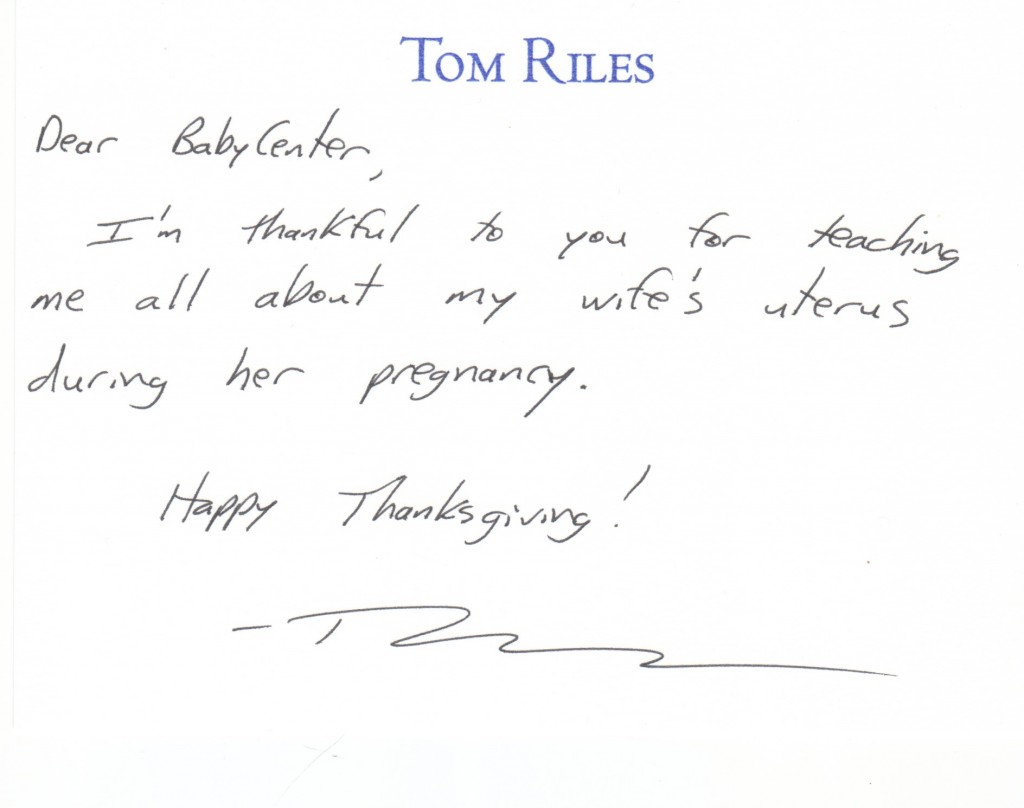 TOM RILES
Dear BabyCenter,
I'm thankful to you for teaching
me all about my wife's uterus
during her pregnancy.
Happy Thanksgiving!